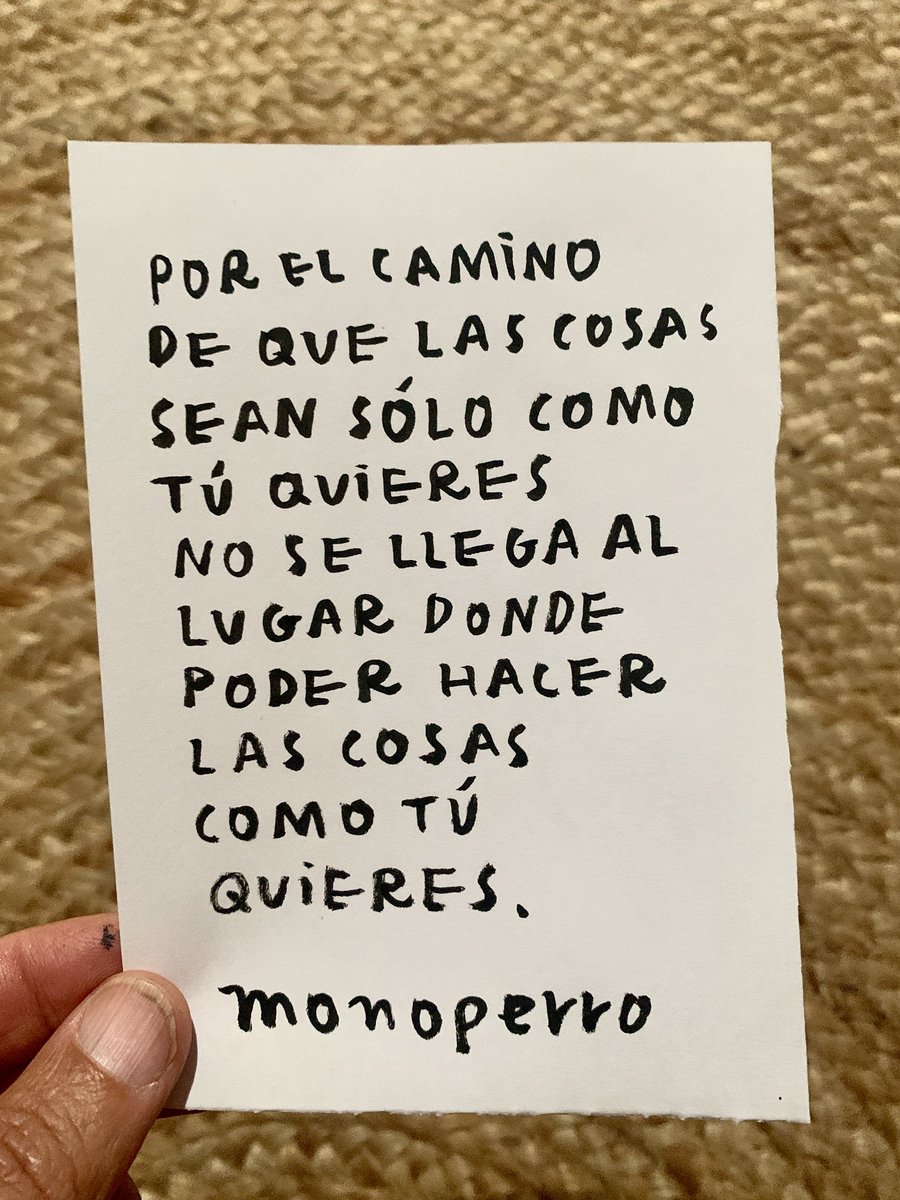 POR EL CAMINO
DE QUE LAS COSAS
SEAN SÓLO COMO
TÚ QUIERES
NO SE LLEGA AL
LUGAR DONDE
PODER HACER
LAS COSAS
COMO TÚ
QUIERES.
monoperro